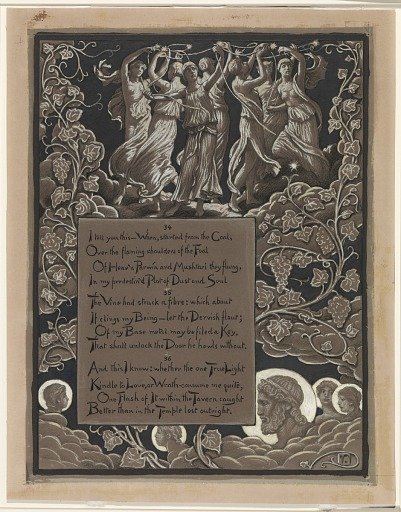 34
I tell you this—When, started from the Goal,
Over the flaming shoulders of the Foal
Of Heav'n Parwin and Mushtari they flung,
In my predestin'd Plot of Dust and Soul
35
The Vine had struck a fibre; which about
If clings my Being—let the Dervish flout;
Of my Base metal may be filed a Key,
That shall unlock the Door he howls without.
36
And this I know: whether the one True Light
Kindle to Love, or Wrath-consume me quite,
One Flash of It within the Tavern caught
Better than in the Temple lost outright.